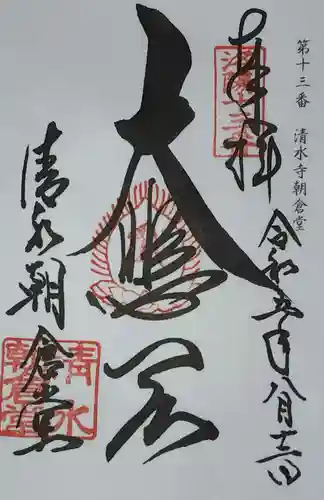 第十三番　清水寺朝倉堂
奉拝
令和五年八月
大悲閣
清水朝倉堂
清水
朝倉堂